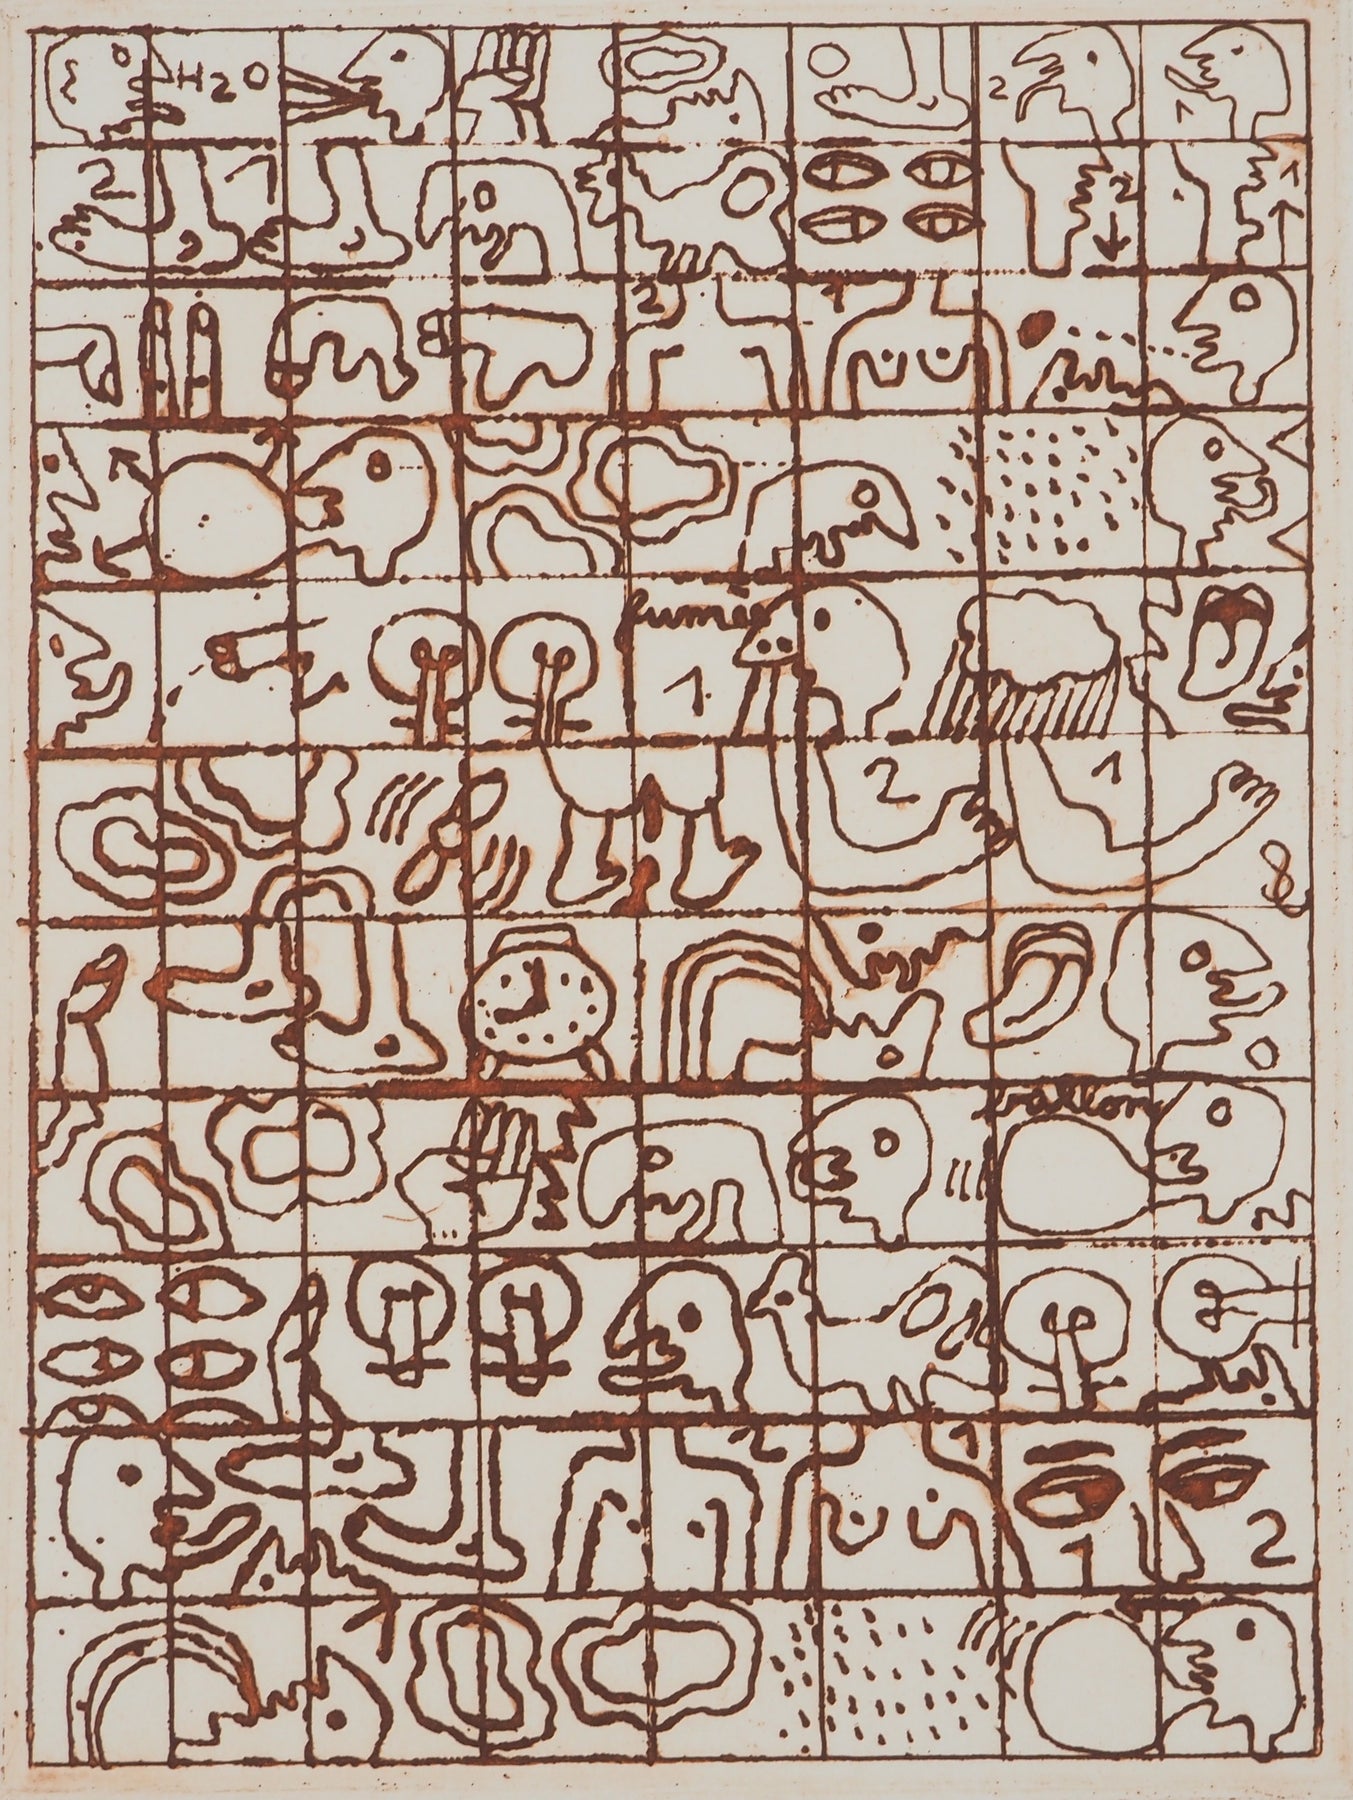 H2O
2 1
2 1
2 1
8 2 1
fumée
1
2 1
8
ballon
2
2 1
1 2